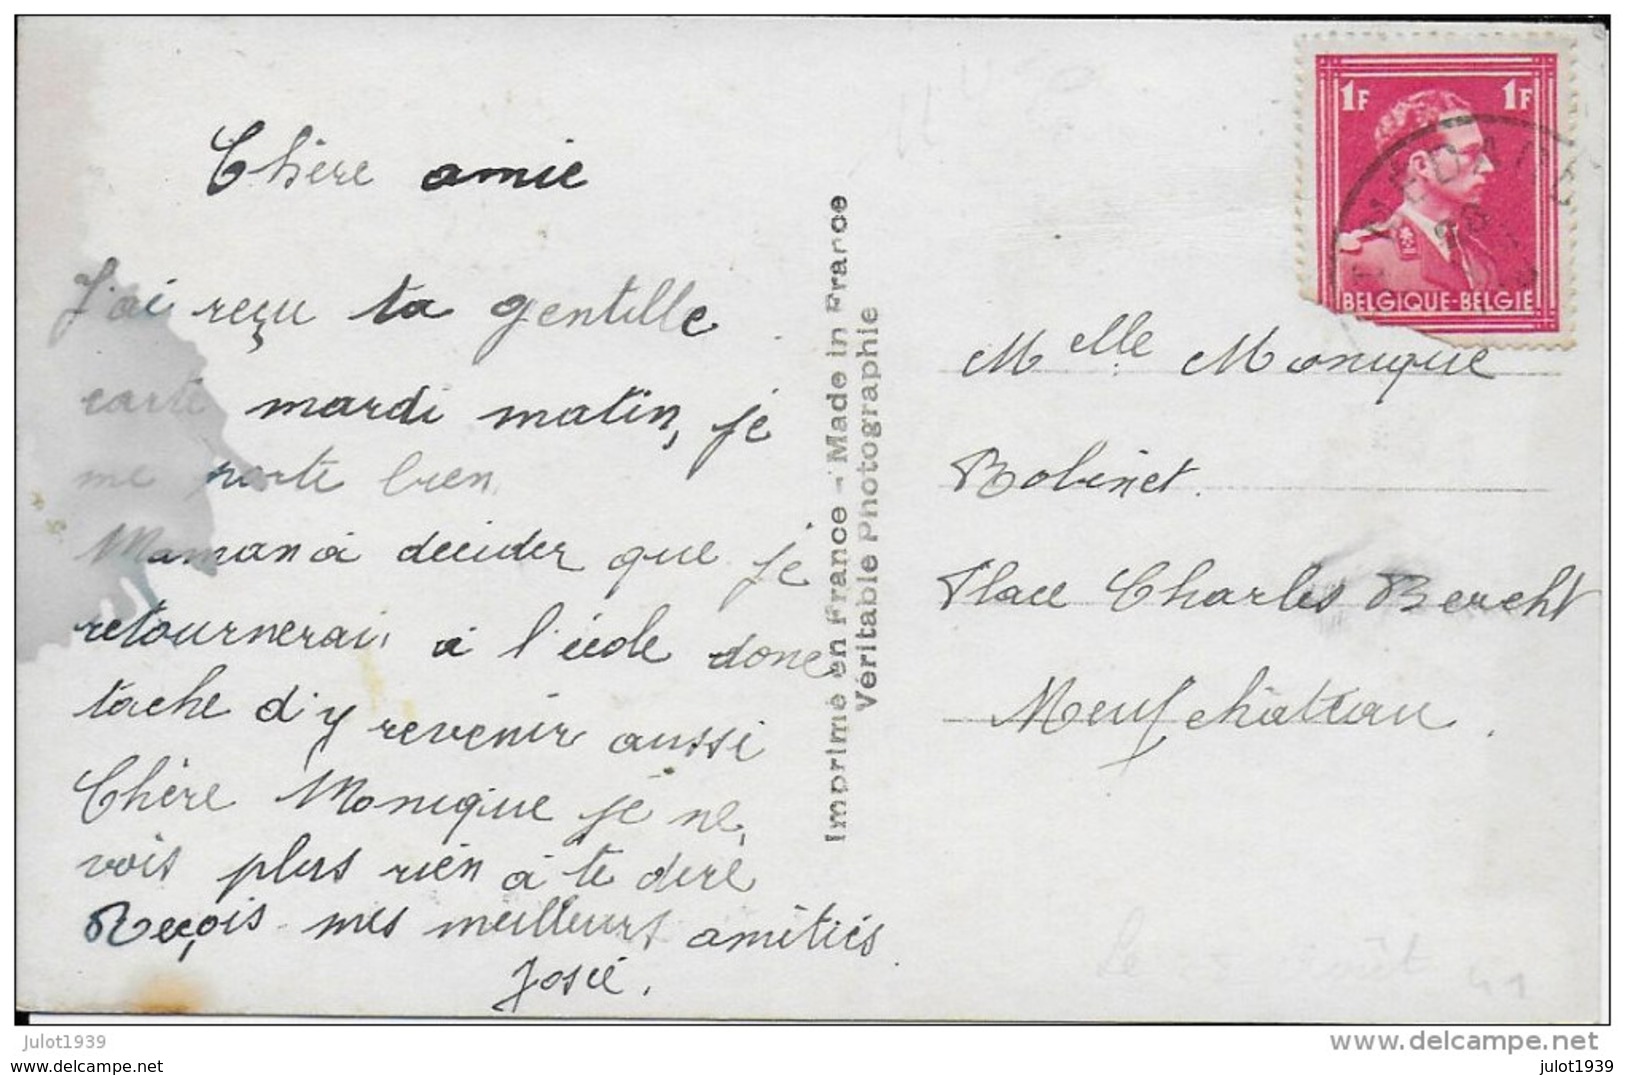 Chère amie
J'ai reçu ta gentille
carte mardi matin, je
me porte bien
Maman a decider que je
retournerai à l'école donc
tache d'y revenir aussi
Chère Monique je ne
vois plus rien à te dire
Reçois mes meilleurs amitiés
Josée.
Imprimé en France - Made in France
Véritable Photographie
1F 1F
BELGIQUE-BELGIE
Melle Monique
Robinet.
Place Charles Bercht
Neufchâteau.
Le août 41
delcampe.net
julot1939
julot1939